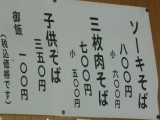 ソーキそば
八〇〇円
小 六〇〇円
三枚肉そば
七〇〇円
小 五〇〇円
子供そば
三五〇円
御飯 一〇〇円
(税込価格です)